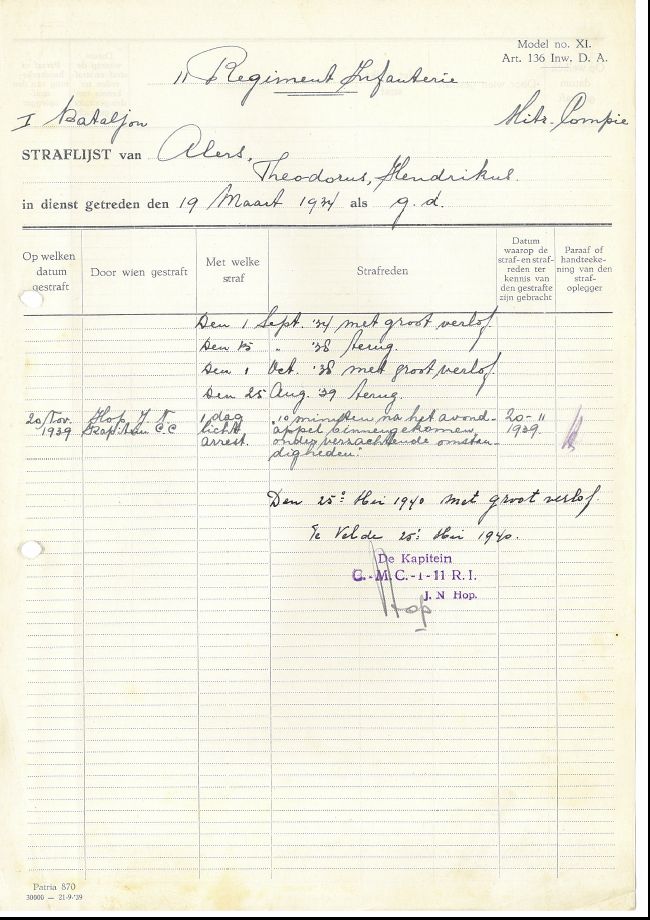 Model no. XI.
Art. 136 Inw. D. A.
11 Regiment Infanterie
I Bataljon
Mitr. Compie
STRAFLIJST van Alers,
Theodorus, Hendrikus.
in dienst getreden den 19 Maart 1934 als g. d.
Op welken datum gestraft
Door wien gestraft
Met welke straf
Strafreden
Datum waarop de straf- en straf-reden ter kennis van den gestrafte zijn gebracht
Paraaf of handteeke-ning van den straf-oplegger
Den 1 Sept. '34 met groot verlof.
Den 15 " '38 terug.
Den 1 Oct. '38 met groot verlof.
Den 25 Aug. '39 terug.
20 Nov. 1939
Hop, J. N. Kapitein C.C
1 dag licht arrest.
„10 minuten na het avond-
appel binnengekomen,
onder verzachtende omstan-
digheden".
20-11 1939.
Den 25e Mei 1940 met groot verlof.
Te Velde 25e Mei 1940.
De Kapitein
C.-M.C.-1-11 R.I.
J. N Hop.
Hop
Patria 870
30000 — 21-9-'39